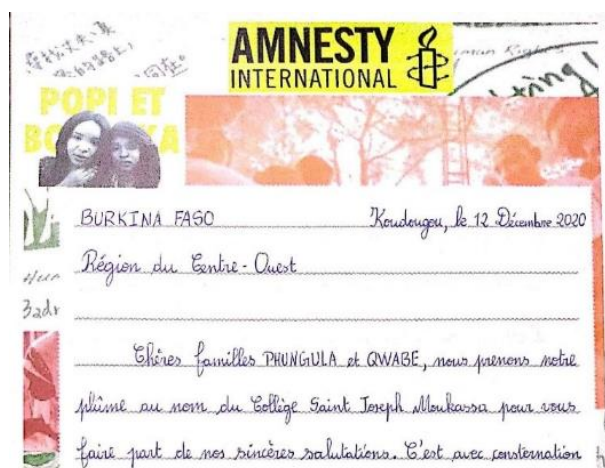 AMNESTY
INTERNATIONAL
POPI ET
BURKINA FASO
Koudougou, le 12 Décembre 2020
Région du Centre-Ouest
Chères familles PHUNGULA et QWABE, nous prenons notre
plûme au nom du Collège Saint Joseph Moukassa pour vous
faire part de nos sincères salutations. C'est avec consternation